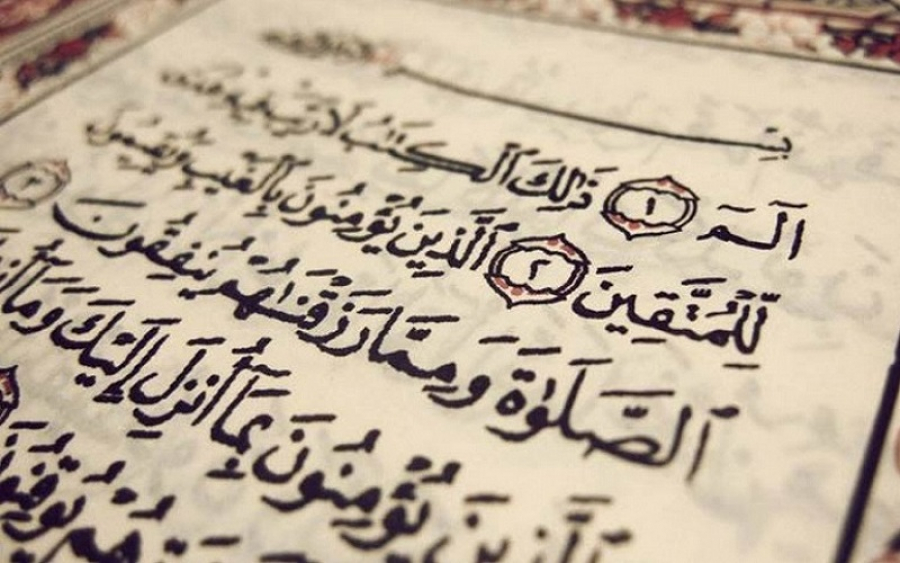 بِسْمِ
الٓمٓ ١ ذَٰلِكَ ٱلْكِتَٰبُ لَا رَيْبَ فِيهِ هُدًى
لِّلْمُتَّقِينَ ٢ ٱلَّذِينَ يُؤْمِنُونَ بِٱلْغَيْبِ وَيُقِيمُونَ
ٱلصَّلَوٰةَ وَمِمَّا رَزَقْنَٰهُمْ يُنفِقُونَ ٣
ٱلَّذِينَ يُؤْمِنُونَ بِمَآ أُنزِلَ إِلَيْكَ وَمَآ
هُمْ